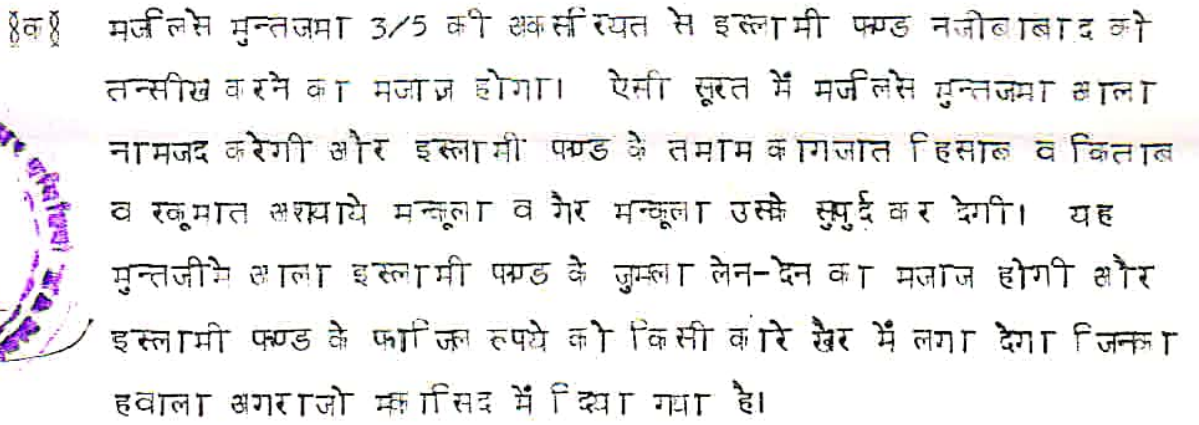 §क§ मजलिसे मुन्तजमा 3/5 की अकसीरयत से इस्लामी फण्ड नजीबाबाद को
तन्सीख करने का मजाज़ होगा। ऐसी सूरत में मजलिसे मुन्तजमा आला
नामजद करेगी और इस्लामी फण्ड के तमाम कागजात हिसाब व किताब
व रकूमात अशयाये मन्कूला व गैर मन्कूला उसके सुपुर्द कर देगी। यह
मुन्तजीमे आला इस्लामी फण्ड के जुमला लेन-देन का मजाज होगी और
इस्लामी फण्ड के फाजिल रूपये को किसी कारे खैर में लगा देगा जिनका
हवाला अगराजो मकासिद में दिया गया है।